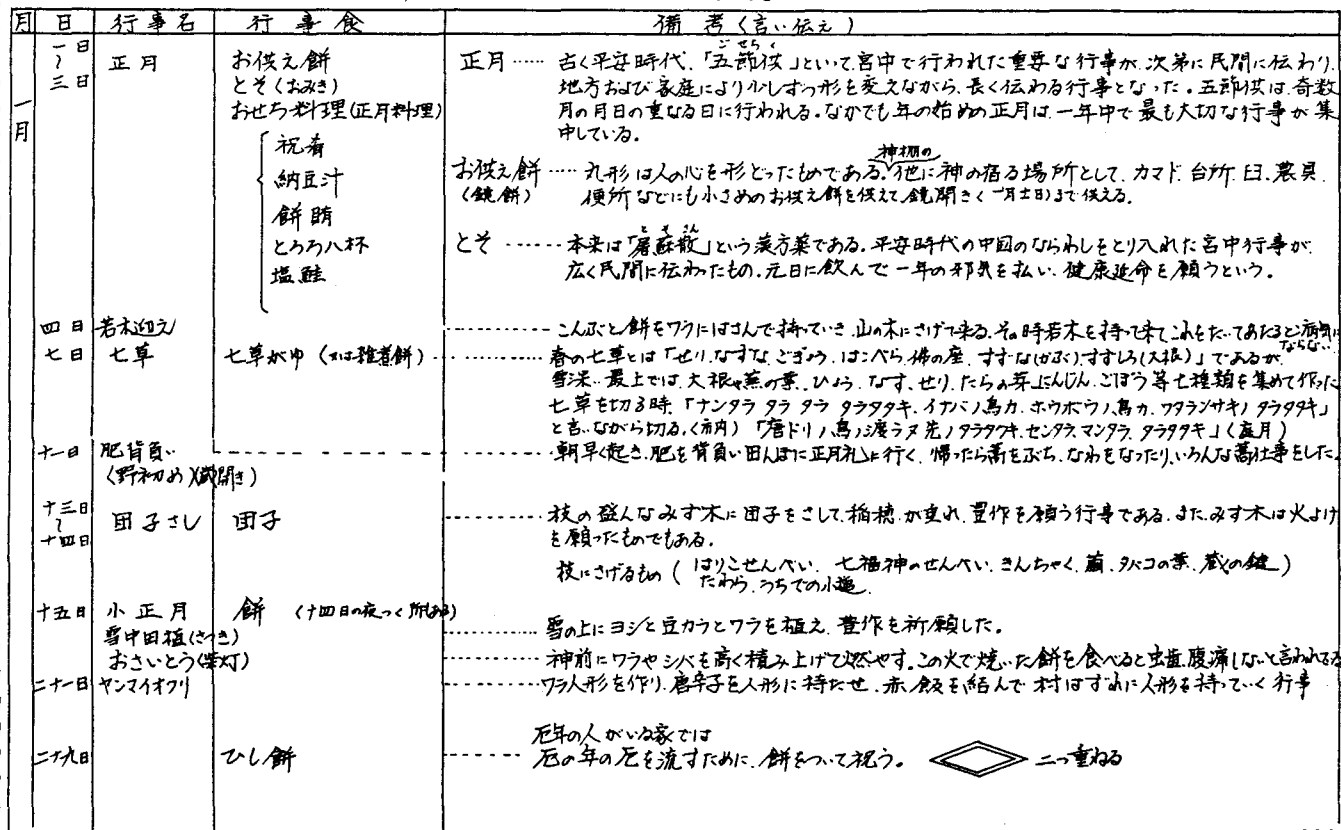 月 日 行事名 行事食 備考(言い伝え)
一月
一日〜三日 正月 お供え餅
とそ(おみき)
おせち料理(正月料理)
祝肴
納豆汁
餅
とろろ八杯
塩鮭
正月…… 古く平安時代、「五節供」といって宮中で行われた重要な行事が、次第に民間に伝わり、
ごせちく
地方および家庭により少しずつ形を変えながら、長く伝わる行事となった。五節供は、奇数
月の月日の重なる日に行われる。なかでも年の始めの正月は、一年中で最も大切な行事が集
中している。
お供え餅…… 丸形は人の心を形どったものである。神棚の他に神の宿る場所として、カマド、台所、臼、農具、
(鏡餅) 便所などにも小さめのお供え餅を供えて、鏡開き(一月十一日)まで供える。
とそ……本来は「屠蘇散」という漢方薬である。平安時代の中国のならわしをとり入れた宮中行事が、
とそさん
広く民間に伝わったもの。元日に飲んで一年の邪気を払い、健康延命を願うという。
四日 若木迎え ……こんぶと餅をワラにはさんで持っていき、山の木にさげて来る。その時若木を持って来てこれをたいてあたると病気にならない。
七日 七草 七草がゆ(又は雑煮餅)……春の七草とは「せり、なずな、ごぎょう、はこべら、佛の座、すずな(かぶ)、すずしろ(大根)」であるが、
最上では、大根や蕪の葉、ひょう、なす、せり、たらの芽、にんじん、ごぼう等七種類を集めて作った
七草を切る時、「ナンタラ タラ タラ タラタタキ、イナバノ鳥カ、ホウホウノ鳥カ、ワタランサキノ タラタタキ」
と言いながら切る。(市内) 「唐ドリノ鳥ノ渡ラヌ先ノタラタタキ、センタラ、マンタラ、タラタタキ」
十一日 肥背負い ……朝早く起き、肥を背負い田んぼに正月礼に行く、帰ったら藁をぶち、なわをなったり、いろんな藁仕事をした。
(野初め)(蔵開き)
十三日〜十四日 団子さし 団子 ……枝の盛んなみず木に団子をさして、稲穂が垂れ、豊作を願う行事である。また、みず木は火よけ
を願ったものでもある。
枝にさげるもの(はりこせんべい、七福神のせんべい、きんちゃく、繭、タバコの葉、蔵の鍵)
たわら、うちでの小
十五日 小正月 餅 (十四日の夜つく所もある)
雪中田植(さつき) ……雪の上にヨシと豆カラとワラを植え、豊作を祈願した。
おさいとう(柴灯) ……神前にワラやシバを高く積み上げて燃やす。この火で焼いた餅を食べると虫歯、腹痛しないと言われてる
二十一日 ヤンマイオクリ ……ワラ人形を作り、唐辛子を人形に持たせ、赤飯を結んで村はずれに人形を持っていく行事
厄年の人がいる家では
二十九日 ひし餅 ……厄の年の厄を流すために、餅をついて祝う。 二つ重ねる